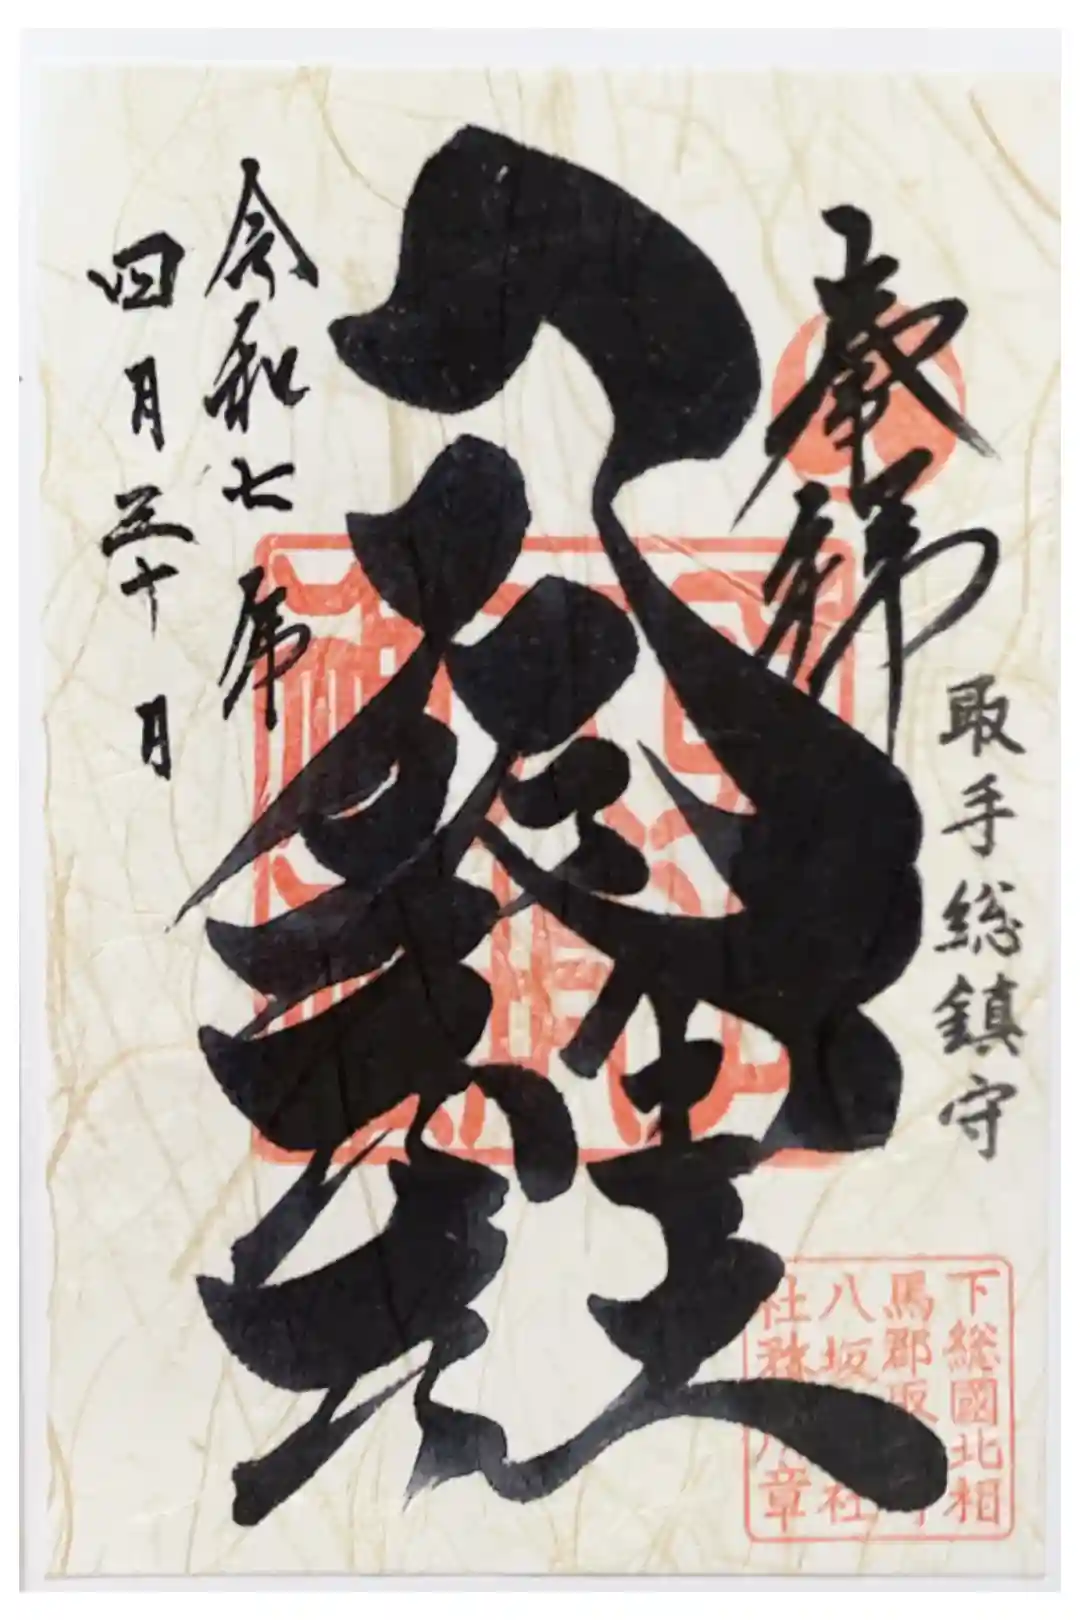 奉拝
取手総鎮守
八坂神社
令和七年
四月三十日
下総國北相
馬郡取
八坂 社
社務 章